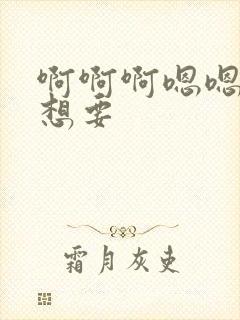 啊啊啊嗯嗯
想要
霜月灰吏